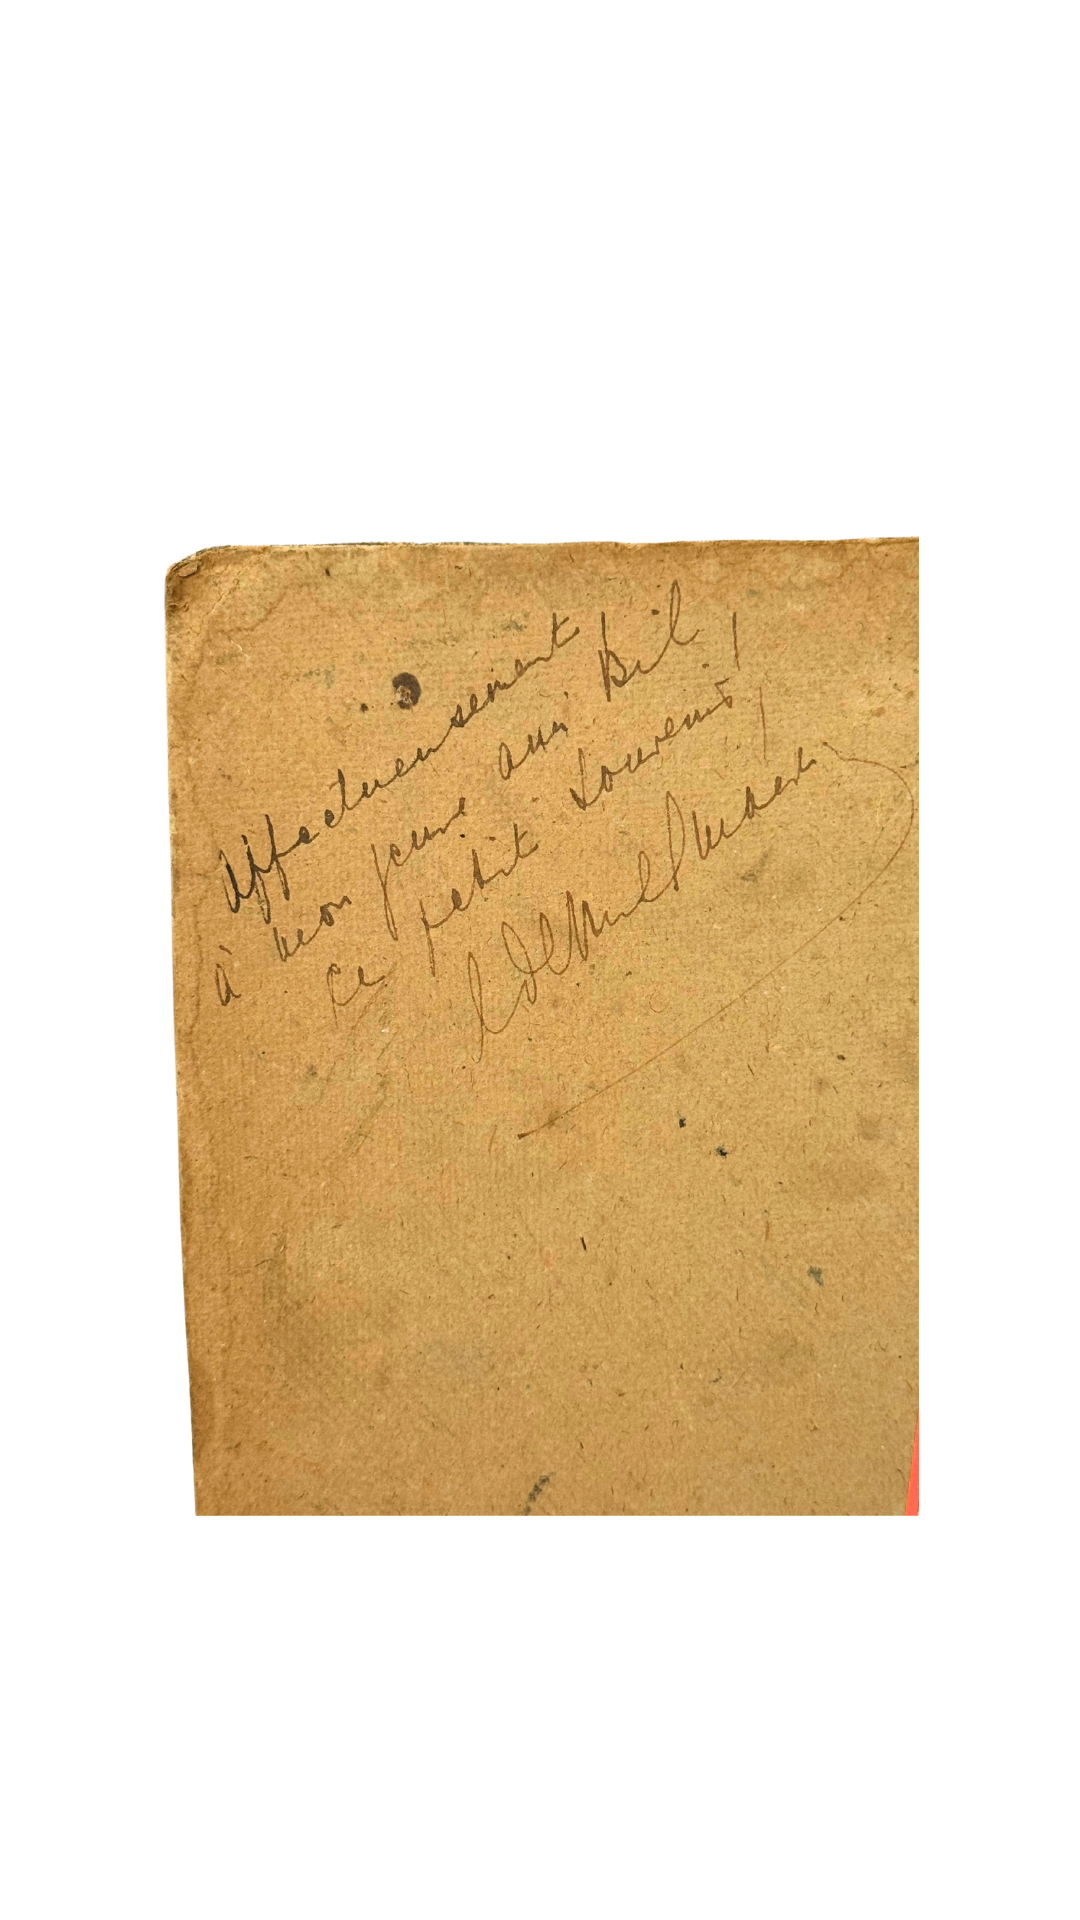 Affectueusement
à mon jeune ami Bil
ce petit souvenir